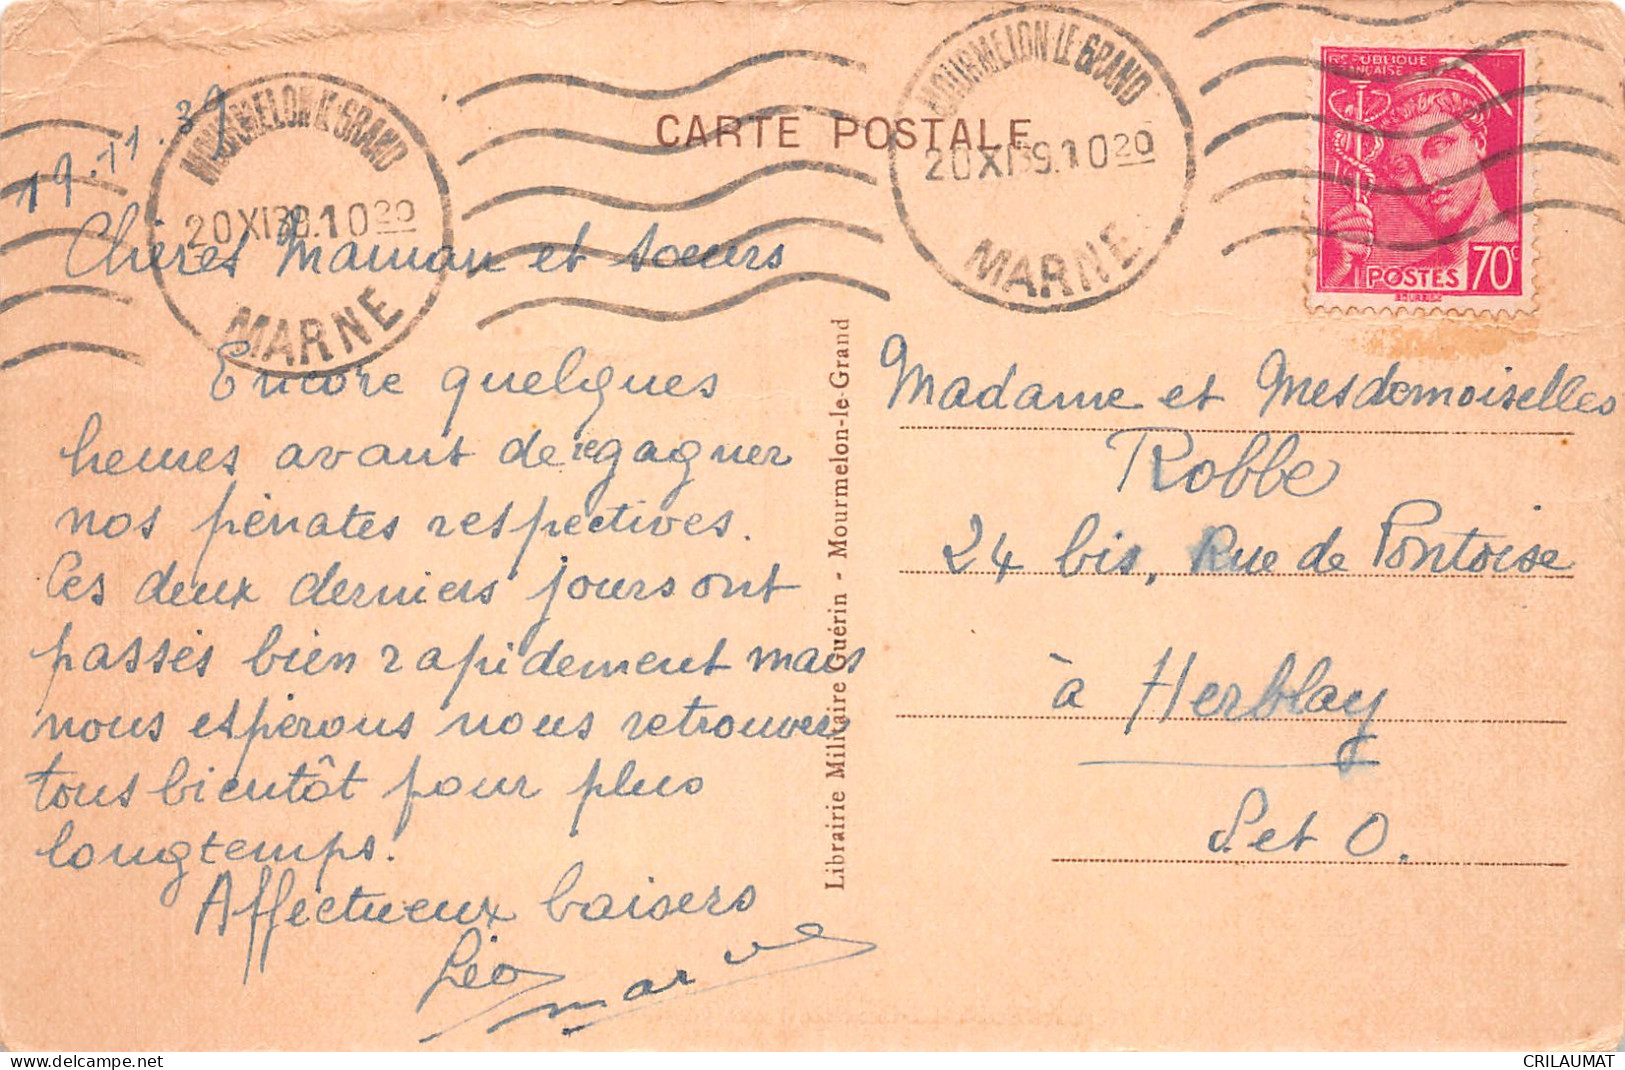 19.11.39
MOURMELON LE GRAND
20 XI 39.10 20
MARNE
CARTE POSTALE
MOURMELON LE GRAND
20 XI 39.10 20
MARNE
REPUBLIQUE
FRANCAISE
POSTES 70c
Chères Maman et soeurs
Encore quelques
heures avant de regagner
nos pénates respectives.
Ces deux derniers jours ont
passés bien rapidement mais
nous espérons nous retrouver
tous bientôt pour plus
longtemps.
Affectueux baisers
Léo
Librairie Militaire Guérin - Mourmelon-le-Grand
Madame et Mesdemoiselles
Robbe
24 bis, Rue de Pontoise
à Herblay
S. et O.
delcampe.net
CRILAUMAT